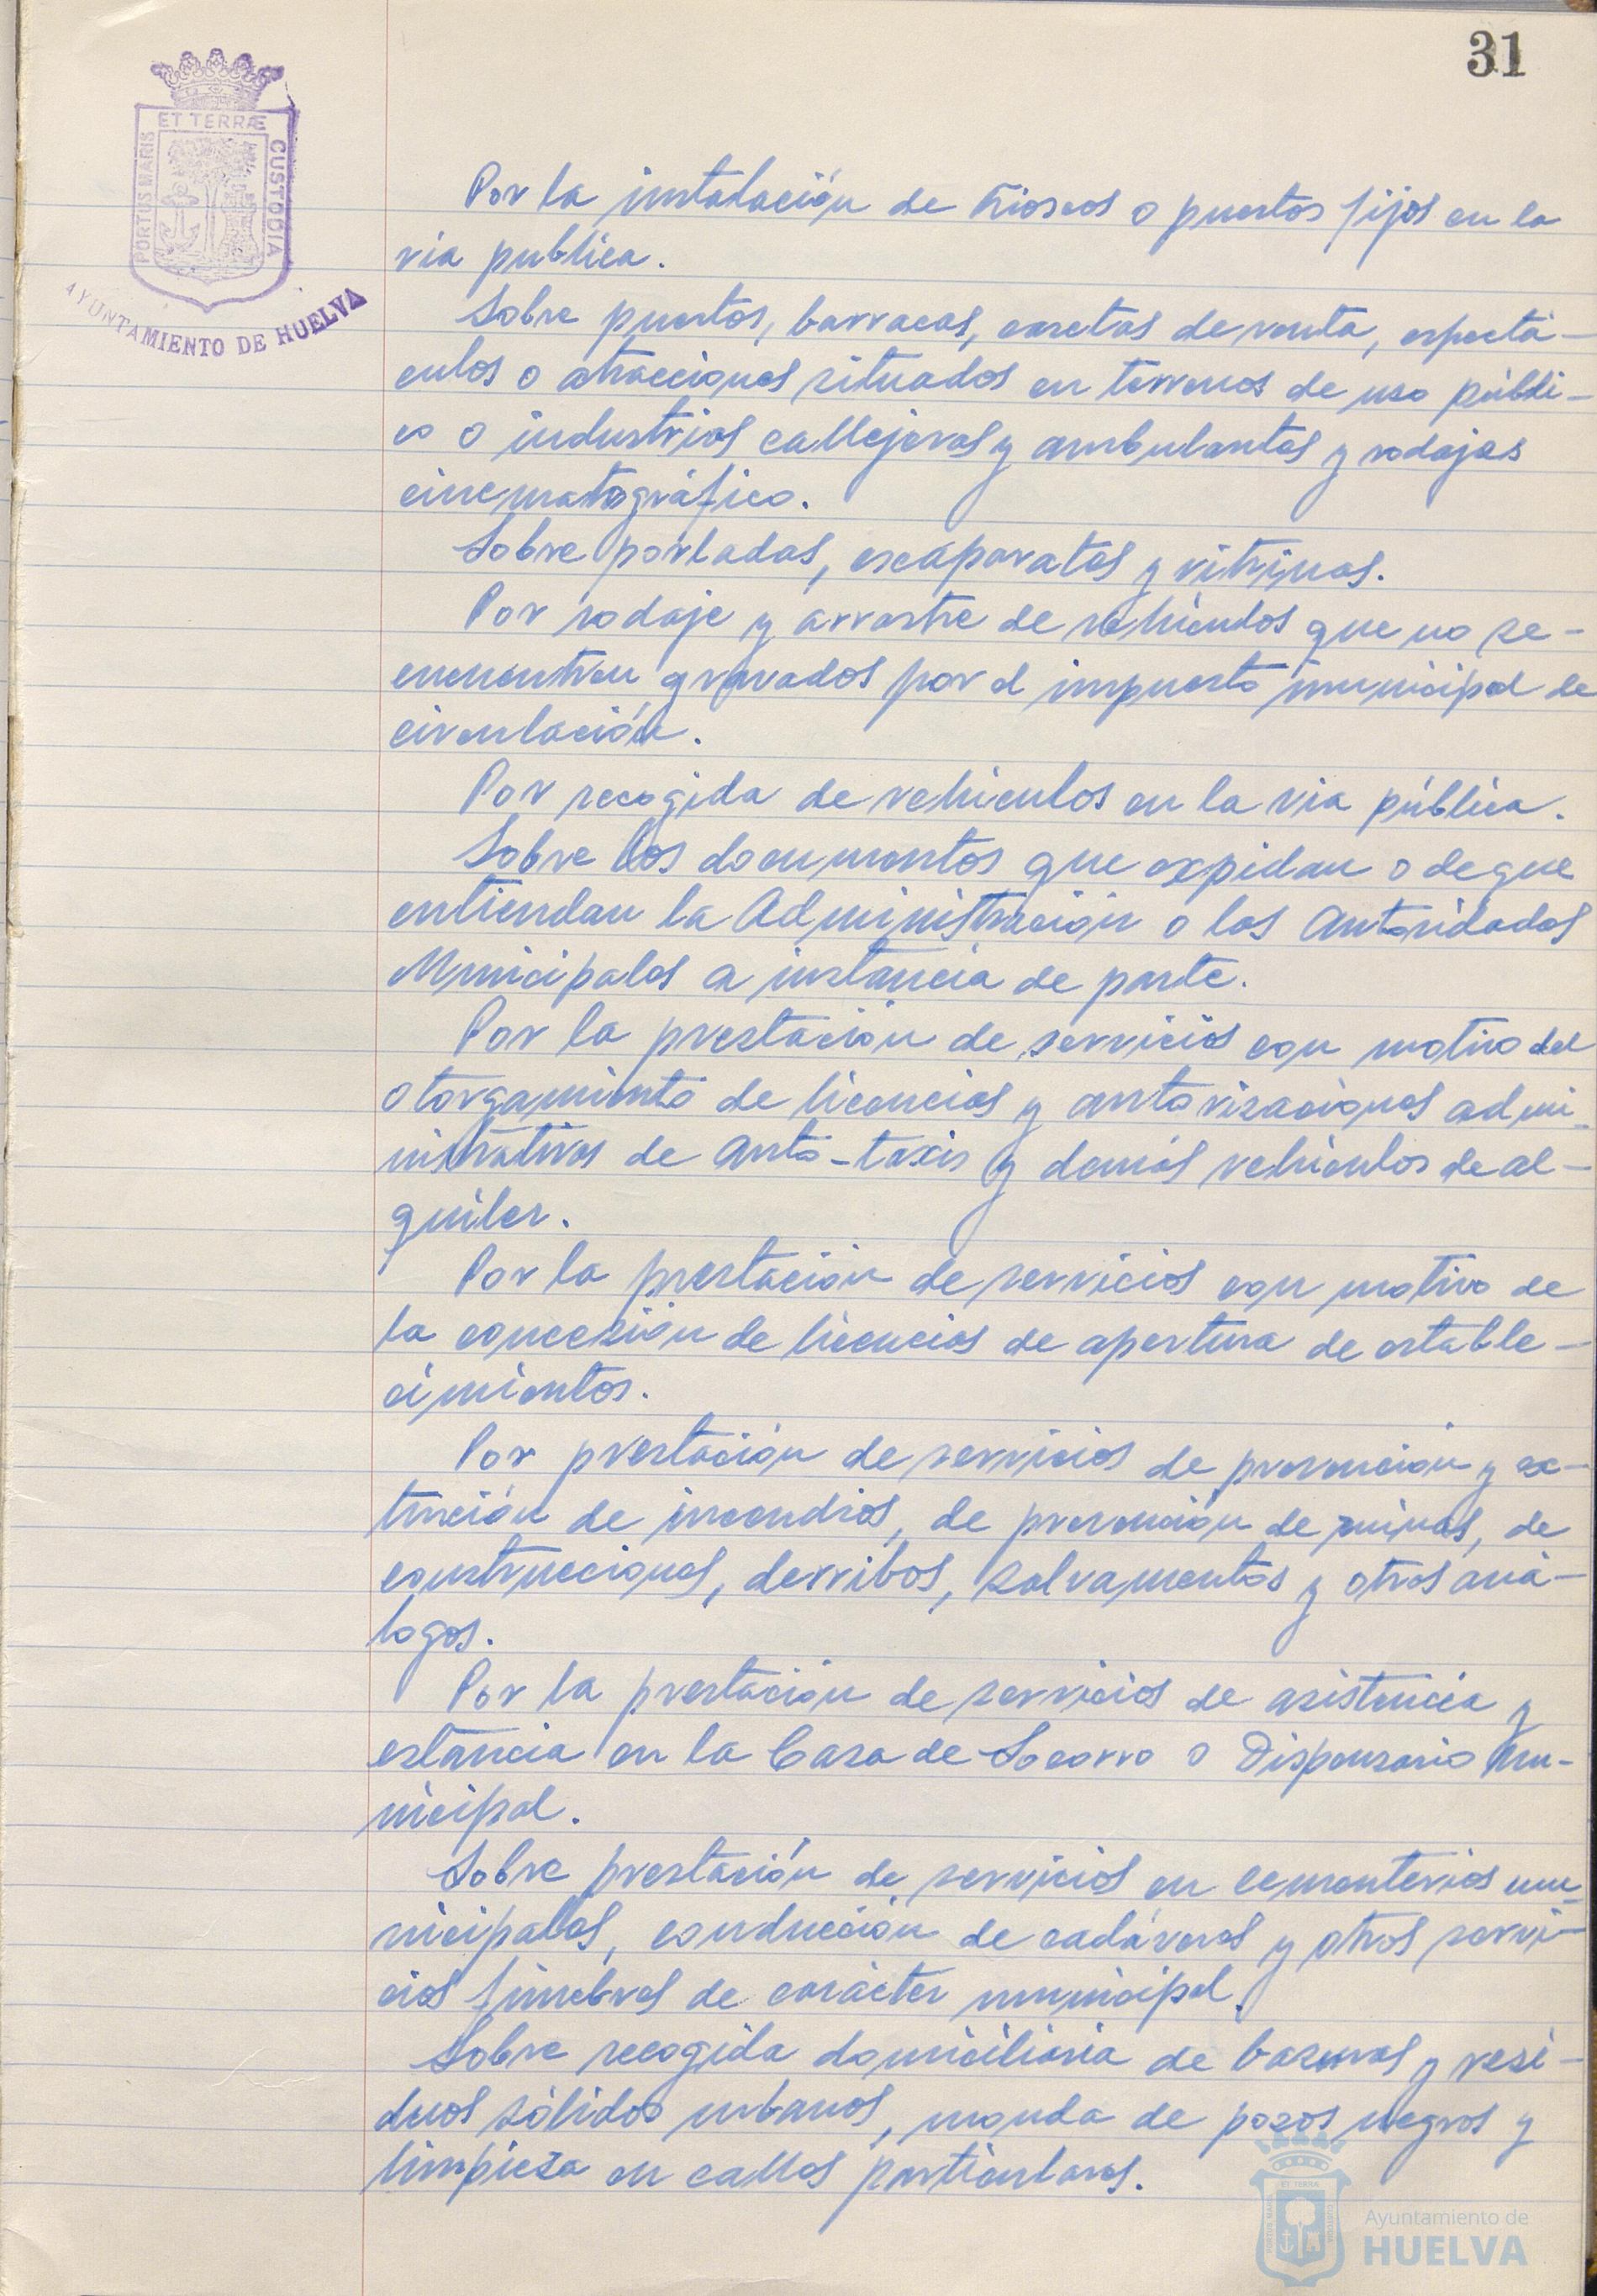 31
ET TERRÆ
PORTUS MARIS
CUSTODIA
AYUNTAMIENTO DE HUELVA
Por la instalación de Kioscos o puestos fijos en la
via publica.
Sobre puestos, barracas, casetas de venta, espectá-
culos o atracciones situados en terrenos de uso públi-
co o industrias callejeras y ambulantes y rodajes
cinematográfico.
Sobre portadas, escaparates y vitrinas.
Por rodaje y arrastre de vehículos que no se-
encuentran gravados por el impuesto municipal de
circulación.
Por recogida de vehiculos en la via pública.
Sobre los documentos que expidan o de que
entiendan la Administración o las Autoridades
Municipales a instancia de parte.
Por la prestación de servicios con motivo del
otorgamiento de licencias y autorizaciones admi-
nistrativas de Auto-taxis y demás vehiculos de al-
quiler.
Por la prestación de servicios con motivo de
la concesión de licencias de apertura de estable-
cimientos.
Por prestación de servicios de prevención y ex-
tinción de incendios, de prevención de ruinas, de
construcciones, derribos, salvamentos y otros aná-
logos.
Por la prestación de servicios de asistencia y
estancia en la Casa de Socorro o Dispensario Mu-
nicipal.
Sobre prestación de servicios en cementerios mu-
nicipales, conducción de cadáveres y otros servi-
cios fúnebres de carácter municipal.
Sobre recogida domiciliaria de basuras y resi-
duos sólidos urbanos, monda de pozos negros y
limpieza en calles particulares.
Ayuntamiento de
HUELVA